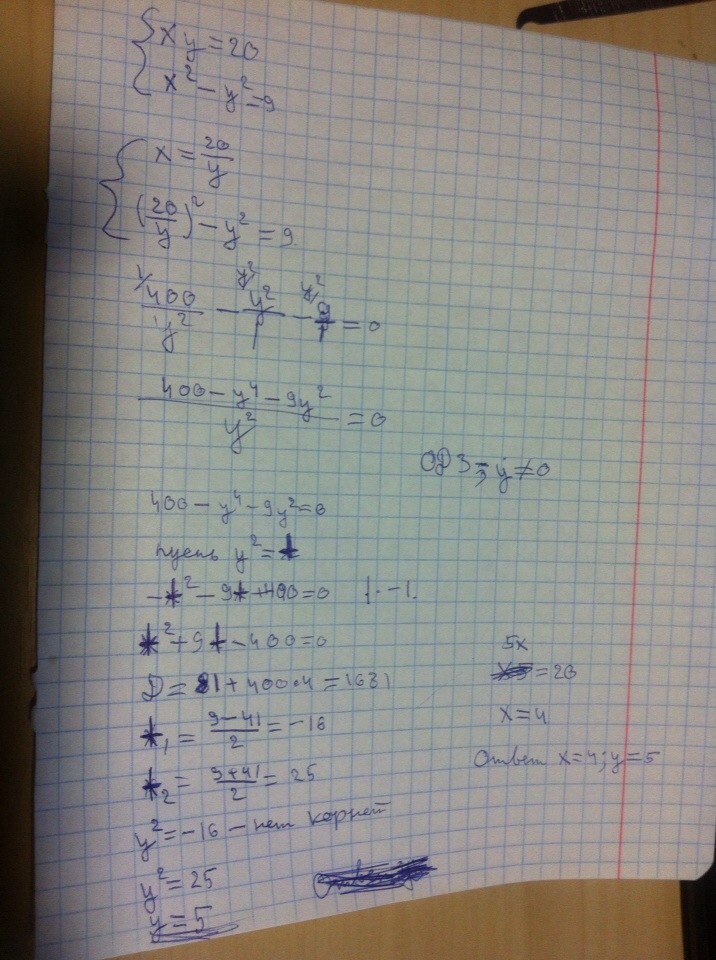 { xy = 20
x² - y² = 9
{ x = 20/y
(20/y)² - y² = 9
1/ 400/y² - y²/ y²/1 - y²/ 9/1 = 0
(400 - y⁴ - 9y²)/y² = 0
ОДЗ - y ≠ 0
400 - y⁴ - 9y² = 0
пусть y² = t
-t² - 9t + 400 = 0 |· -1
t² + 9t - 400 = 0
D = 81 + 400·4 = 1681
t₁ = (9 - 41)/2 = -16
t₂ = (9 + 41)/2 = 25
y² = -16 - нет корней
y² = 25
y = 5
5x = 20
x = 4
Ответ x = 4; y = 5